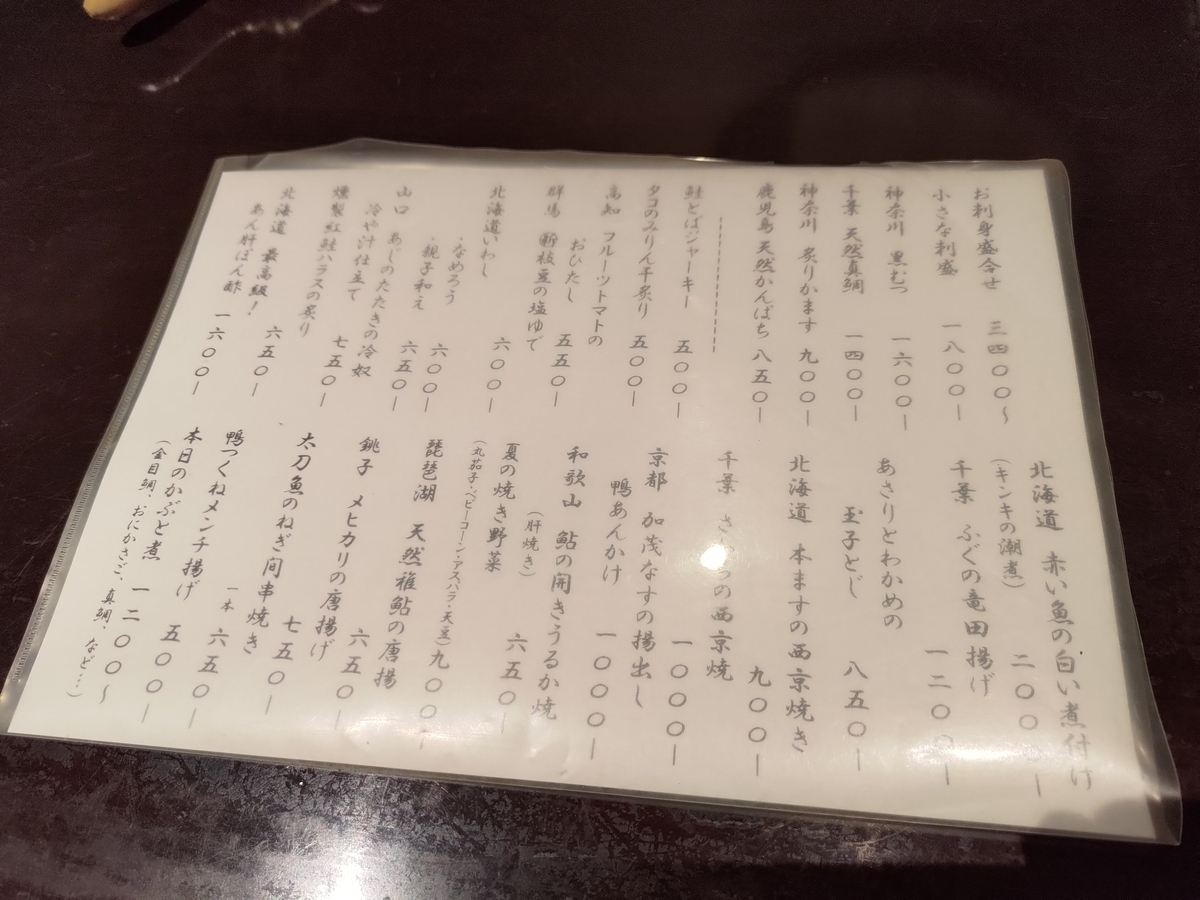 お刺身盛合せ 三四〇〇〜
小さな刺盛 一八〇〇ー
神奈川 黒むつ 一六〇〇ー
千葉 天然真鯛 一四〇〇ー
神奈川 炙りかます 九〇〇ー
鹿児島 天然かんぱち 八五〇ー
鮭とばジャーキー 五〇〇ー
タコのみりん干炙り 五〇〇ー
高知 フルーツトマトの
おひたし 五五〇ー
群馬 新枝豆の塩ゆで 六〇〇ー
北海道いわし
・なめろう 六〇〇ー
・親子和え 六五〇ー
山口 あじのたたきの冷奴
冷や汁仕立て 七五〇ー
燻製紅鮭ハラスの炙り 六五〇ー
北海道 最高級!
あん肝ぽん酢 一六〇〇ー
北海道 赤い魚の白い煮付け
(キンキの潮煮) 二〇〇
千葉 ふぐの竜田揚げ 一二〇〇ー
あさりとわかめの
玉子とじ 八五〇ー
北海道 本ますの西京焼き 九〇〇ー
千葉 さ の西京焼 一〇〇〇ー
京都 加茂なすの揚出し
鴨あんかけ 一〇〇〇ー
和歌山 鮎の開きうるか焼
(肝焼き) 六五〇ー
夏の焼き野菜
(丸茄子・ベビーコーン・アスパラ・天豆) 九〇〇ー
琵琶湖 天然稚鮎の唐揚 六五〇ー
銚子 メヒカリの唐揚げ 七五〇ー
太刀魚のねぎ間串焼き
一本 六五〇ー
鴨つくねメンチ揚げ 五〇〇ー
本日のかぶと煮 一二〇〇〜
(金目鯛、おにかさご、真鯛、など…)